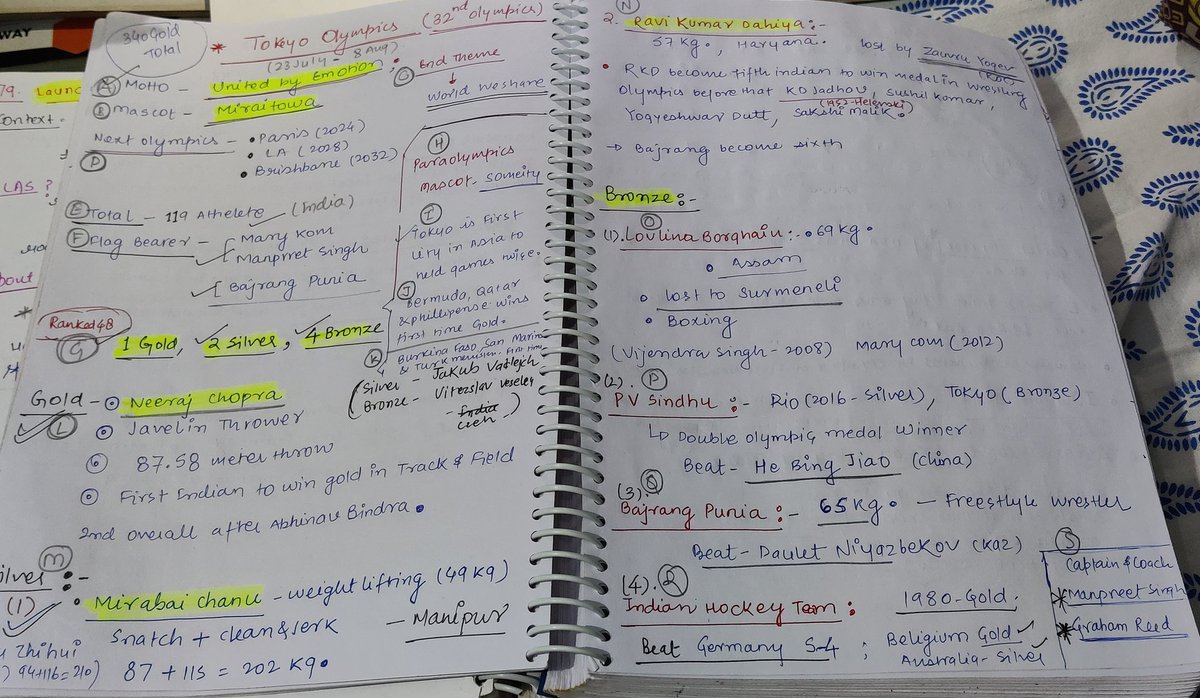 WAY
79. Launc
Context.
LAS ?
bout
340 Gold
Total
* Tokyo Olympics (32nd olympics)
(23 July - 8 Aug)
(A) Motto - United by Emotion.
(B) Mascot - Miraitowa
(C) End Theme
↓
World We share
Next Olympics - • Paris (2024)
(D) • LA (2028)
• Brishbane (2032)
(E) Total - 119 Athelete (India)
(F) Flag Bearer - Mary Kom
Manpreet Singh
[Bajrang Punia
(H)
Paraolympics
Mascot - Someity
(I)
Tokyo is first
city in Asia to
held games twice.
(J)
Bermuda, Qatar
& phillipense wins
first time Gold.
(K) Burkina Faso, San Marino
& Turk menisian. First time
Ranked 48
(G) 1 Gold, 2 Silver, 4 Bronze
Gold - Neeraj Chopra
(L) Javelin Thrower
87.58 meter throw
First Indian to win gold in Track & Field
2nd overall after Abhinav Bindra.
(Silver - Jakub Vadlejch
Bronze - Vitezslav Veseley
(M)
ilver :-
(1) • Mirabai Chanu - weight lifting (49 kg)
Snatch + clean & jerk - Manipur
87 + 115 = 202 kg.
Zhihui
) 94+116=210)
(N)
2. Ravi Kumar Dahiya :-
57 kg., Haryana. lost by Zauvru Yogev
(ROC)
• RKD become fifth indian to win medal in wrestling
Olympics before that KD Jadhov, Sushil Kumar,
(1952-Helenski)
Yogyeshwar Dutt, Sakshi Malik.
→ Bajrang become sixth
Bronze :-
(O)
(1). Lovlina Borghain :- • 69 kg.
• Assam
• lost to Surmeneli
• Boxing
(Vijendra Singh - 2008) Mary com (2012)
(2). (P)
PV Sindhu :- Rio (2016 - Silver), Tokyo (Bronze)
↳ Double olympic medal winner
Beat - He Bing Jiao (China)
(3). (Q)
Bajrang Punia :- 65 kg. - Freestlyle wrestler
Beat - Daulet Niyazbekov (KAZ)
(4). (R)
Indian Hockey Team : 1980 - Gold.
Beat Germany 5-4 ; Beligium Gold
Australia - Silver
(S)
Captain & Coach
* Manpreet Singh
* Graham Reed